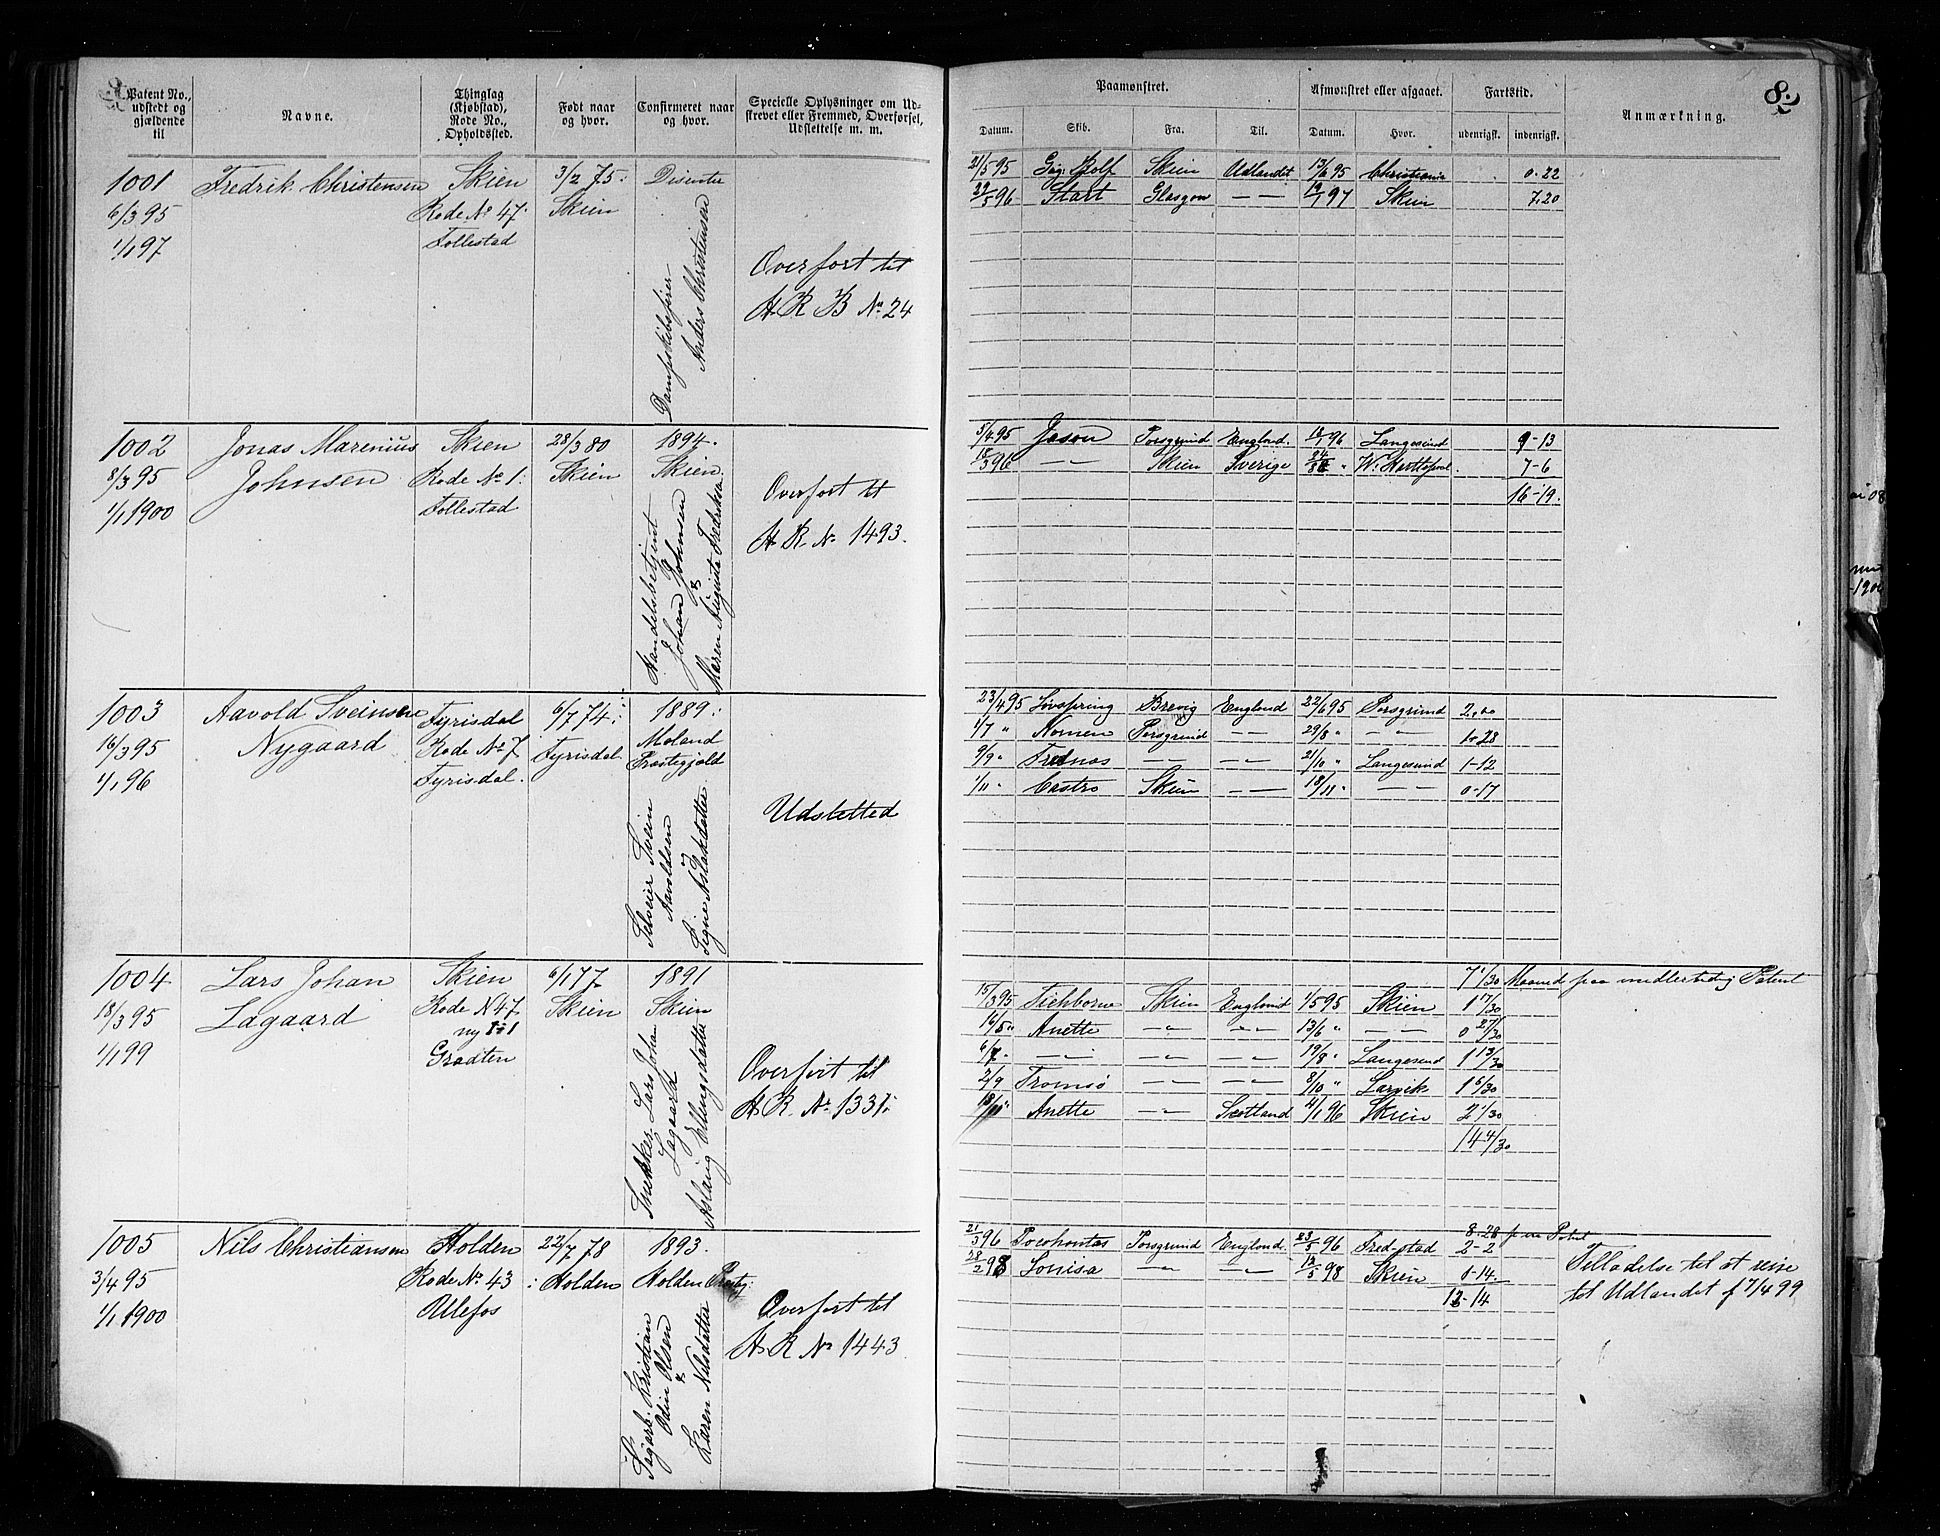 Patent No., udstedt og gjældende til
Navne.
Thinglag (Kjøbstad), Rode No., Opholdssted.
Født naar og hvor.
Confirmeret naar og hvor.
Specielle Oplysninger om Udskrevet eller Fremmed, Overførsel, Udslettelse m. m.
Paamønstret.
Afmønstret eller afgaaet.
Fartstid.
Anmærkning.
Datum. Skib. Fra. Til. Datum. Hvor. udenrigsk. indenrigsk.
8.
1001
6/3 95
1/1 97
Fredrik Christensen
Skien
Rode No 47.
Follestad
3/2 75.
Skien
Disenter
Dampskibsfører
Anders Christensen
Overført til
H R B No 24
21/5 95 Rolf Skien Udlandet 13/6 95 Christiania 0-22
29/5 96 Start Glasgow — — 12/1 97 Skien 7.20
1002
8/3 95
1/1 1900
Jonas Marenius
Johnsen
Skien
Rode No 1.
Follestad
28/3 80
Skien
1894.
Skien
Handelsbetjent
Johan Johnsen
&
Maren Augusta Fredriksen
Overført til
H. R. No 1493.
5/4 95 Jason Porsgrund England. 18/1 96 Langesund 9-13
18/3 96 — — Skien Sverige W. Hartlepool. 7-6
16-19.
1003
16/3 95
1/1 96
Aavold Sveinsen
Nygaard
Fyrisdal
Rode No 7
Fyrisdal.
6/7 74.
Fyrisdal.
1889.
Moland
Præstegjeld
Selveier Svein
Aavoldsen
&
Signe Aslaksdatter
Udslettet
23/4 95 Løvspring Brevig England 22/6 95 Porsgrund 2.00
1/7 " Nornen Porsgrund — — 29/8 " — " — 1-28
9/9 " Frednæs — — — — 21/10 " Langesund 1-12
1/11 " Castro Skien — — 18/11 " — — 0-17
1004
18/3 95
1/1 99
Lars Johan
Lagaard
Skien
Rode N 47
ny
Graaten
6/1 77.
Skien
1891
Skien
Snekker Lars Johan
Lagaard &
Aslaug Ellengsdatter
Overført til
H R. No 1331.
7 1/30 Maaned paa midlertidig Patent
15/3 95 Tichborne Skien England 1/5 95 Skien 1 17/30
16/5 " Anette — " — — " — 13/6 " — — 0 27/30
6/7 " — " — — " — — " — 19/8 " Langesund 1 13/30
2/9 Tromsø — — — — 8/10 " Larvik 1 6/30
Anette — " — Scotland 4/1 96 Skien 2 1/30
14 4/30
1005
3/4 95
1/1 1900
Nils Christiansen
Holden
Rode No. 43
Ulefos
22/7 78
Holden
1893.
Holden Prestg:
Kristian
Odin Olsen
&
Karen Nilsdatter
Overført til
H R No 1443
8-28
21/3 96 Pocohontas Porsgrund England. 23/5 96 Fred-stad 2-2
28/2 98 Lovisa — " — — " — 12/3 98 Skien 0-14.
12-14
Tilladelse til at reise
til Udlandet f 7/4 99